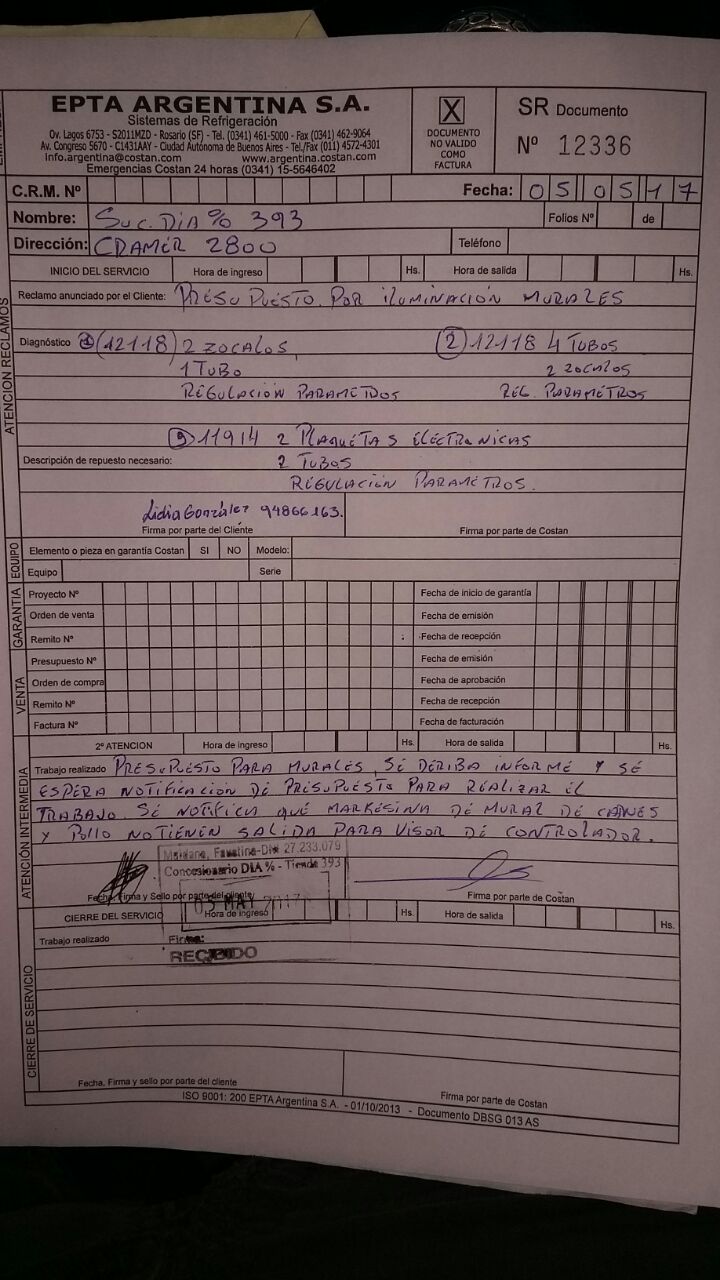 EPTA ARGENTINA S.A.
Sistemas de Refrigeración
Ov. Lagos 6753 - S2011MZD - Rosario (SF) - Tel. (0341) 461-5000 - Fax (0341) 462-9064
Av. Congreso 5670 - C1431AAY - Ciudad Autónoma de Buenos Aires - Tel./Fax (011) 4572-4301
info.argentina@costan.com www.argentina.costan.com
Emergencias Costan 24 horas (0341) 15-5646402
X
DOCUMENTO
NO VALIDO
COMO
FACTURA
SR Documento
Nº 12336
C.R.M. Nº Fecha: 05 05 17
Nombre: Suc. DIA % 393 Folios Nº de
Dirección: CRAMER 2800 Teléfono
INICIO DEL SERVICIO Hora de ingreso Hs. Hora de salida Hs.
ATENCION RECLAMOS
Reclamo anunciado por el Cliente: PRESUPUESTO POR ILUMINACIÓN MURALES
Diagnóstico 1 (12118) 2 ZOCALOS, (2) 12118 4 TUBOS
1 TUBO 2 ZOCALOS
REGULACIÓN PARAMETROS REG. PARAMETROS
11914 2 PLAQUETAS ELECTRONICAS
Descripción de repuesto necesario: 2 TUBOS
REGULACIÓN PARAMETROS.
Lidia González 94866163.
Firma por parte del Cliente Firma por parte de Costan
GARANTIA EQUIPO
Elemento o pieza en garantía Costan SI NO Modelo:
Equipo Serie
Proyecto Nº Fecha de inicio de garantía
Orden de venta Fecha de emisión
Remito Nº Fecha de recepción
VENTA
Presupuesto Nº Fecha de emisión
Orden de compra Fecha de aprobación
Remito Nº Fecha de recepción
Factura Nº Fecha de facturación
ATENCIÓN INTERMEDIA
2º ATENCION Hora de ingreso Hs. Hora de salida Hs.
Trabajo realizado PRESUPUESTO PARA MURALES, SE DERIBA INFORME Y SE
ESPERA NOTIFICACIÓN DE PRESUPUESTO PARA REALIZAR EL
TRABAJO. SE NOTIFICA QUE MARKESINA DE MURAL DE CARNES
Y POLLO NO TIENEN SALIDA PARA VISOR DE CONTROLADOR.
Faustina-DNI 27.233.079
Concesionario DIA % - Tienda 393
Fecha, Firma y Sello por parte del cliente Firma por parte de Costan
MAY 2017
CIERRE DEL SERVICIO Hora de ingreso Hs. Hora de salida Hs.
CIERRE DE SERVICIO
Trabajo realizado Firma:
RECIBIDO
Fecha, Firma y sello por parte del cliente Firma por parte de Costan
ISO 9001: 200 EPTA Argentina S.A. - 01/10/2013 - Documento DBSG 013 AS